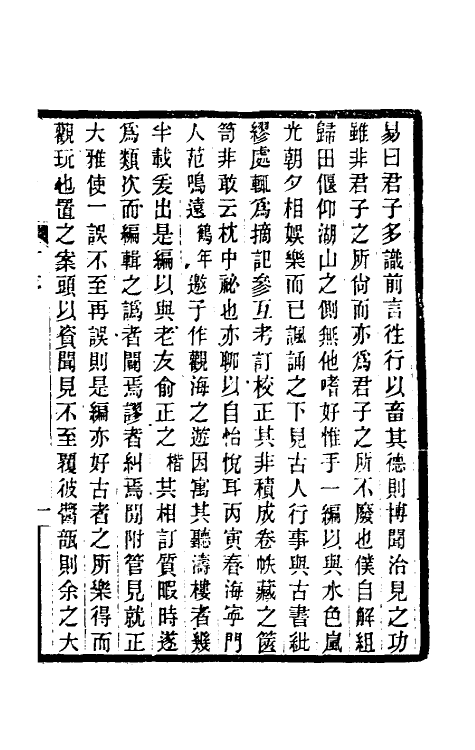 易曰君子多識前言往行以畜其德則博聞洽見之功
雖非君子之所尙而亦爲君子之所不廢也僕自解組
歸田偃仰湖山之側無他嗜好惟手一編以與水色嵐
光朝夕相娛樂而已諷誦之下見古人行事與古書紕
繆處輒爲摘記參互考訂校正其非積成卷帙藏之篋
笥非敢云枕中祕也亦聊以自怡悅耳丙寅春海寧門
人范鳴遠鶴年邀予作觀海之遊因寓其聽濤樓者幾
半載爰出是編以與老友俞正之楷共相訂質暇時遂
爲類次而編輯之譌者闢焉謬者糾焉間附管見就正
大雅使一誤不至再誤則是編亦好古者之所樂得而
觀玩也置之案頭以資聞見不至覆彼醬瓿則余之大